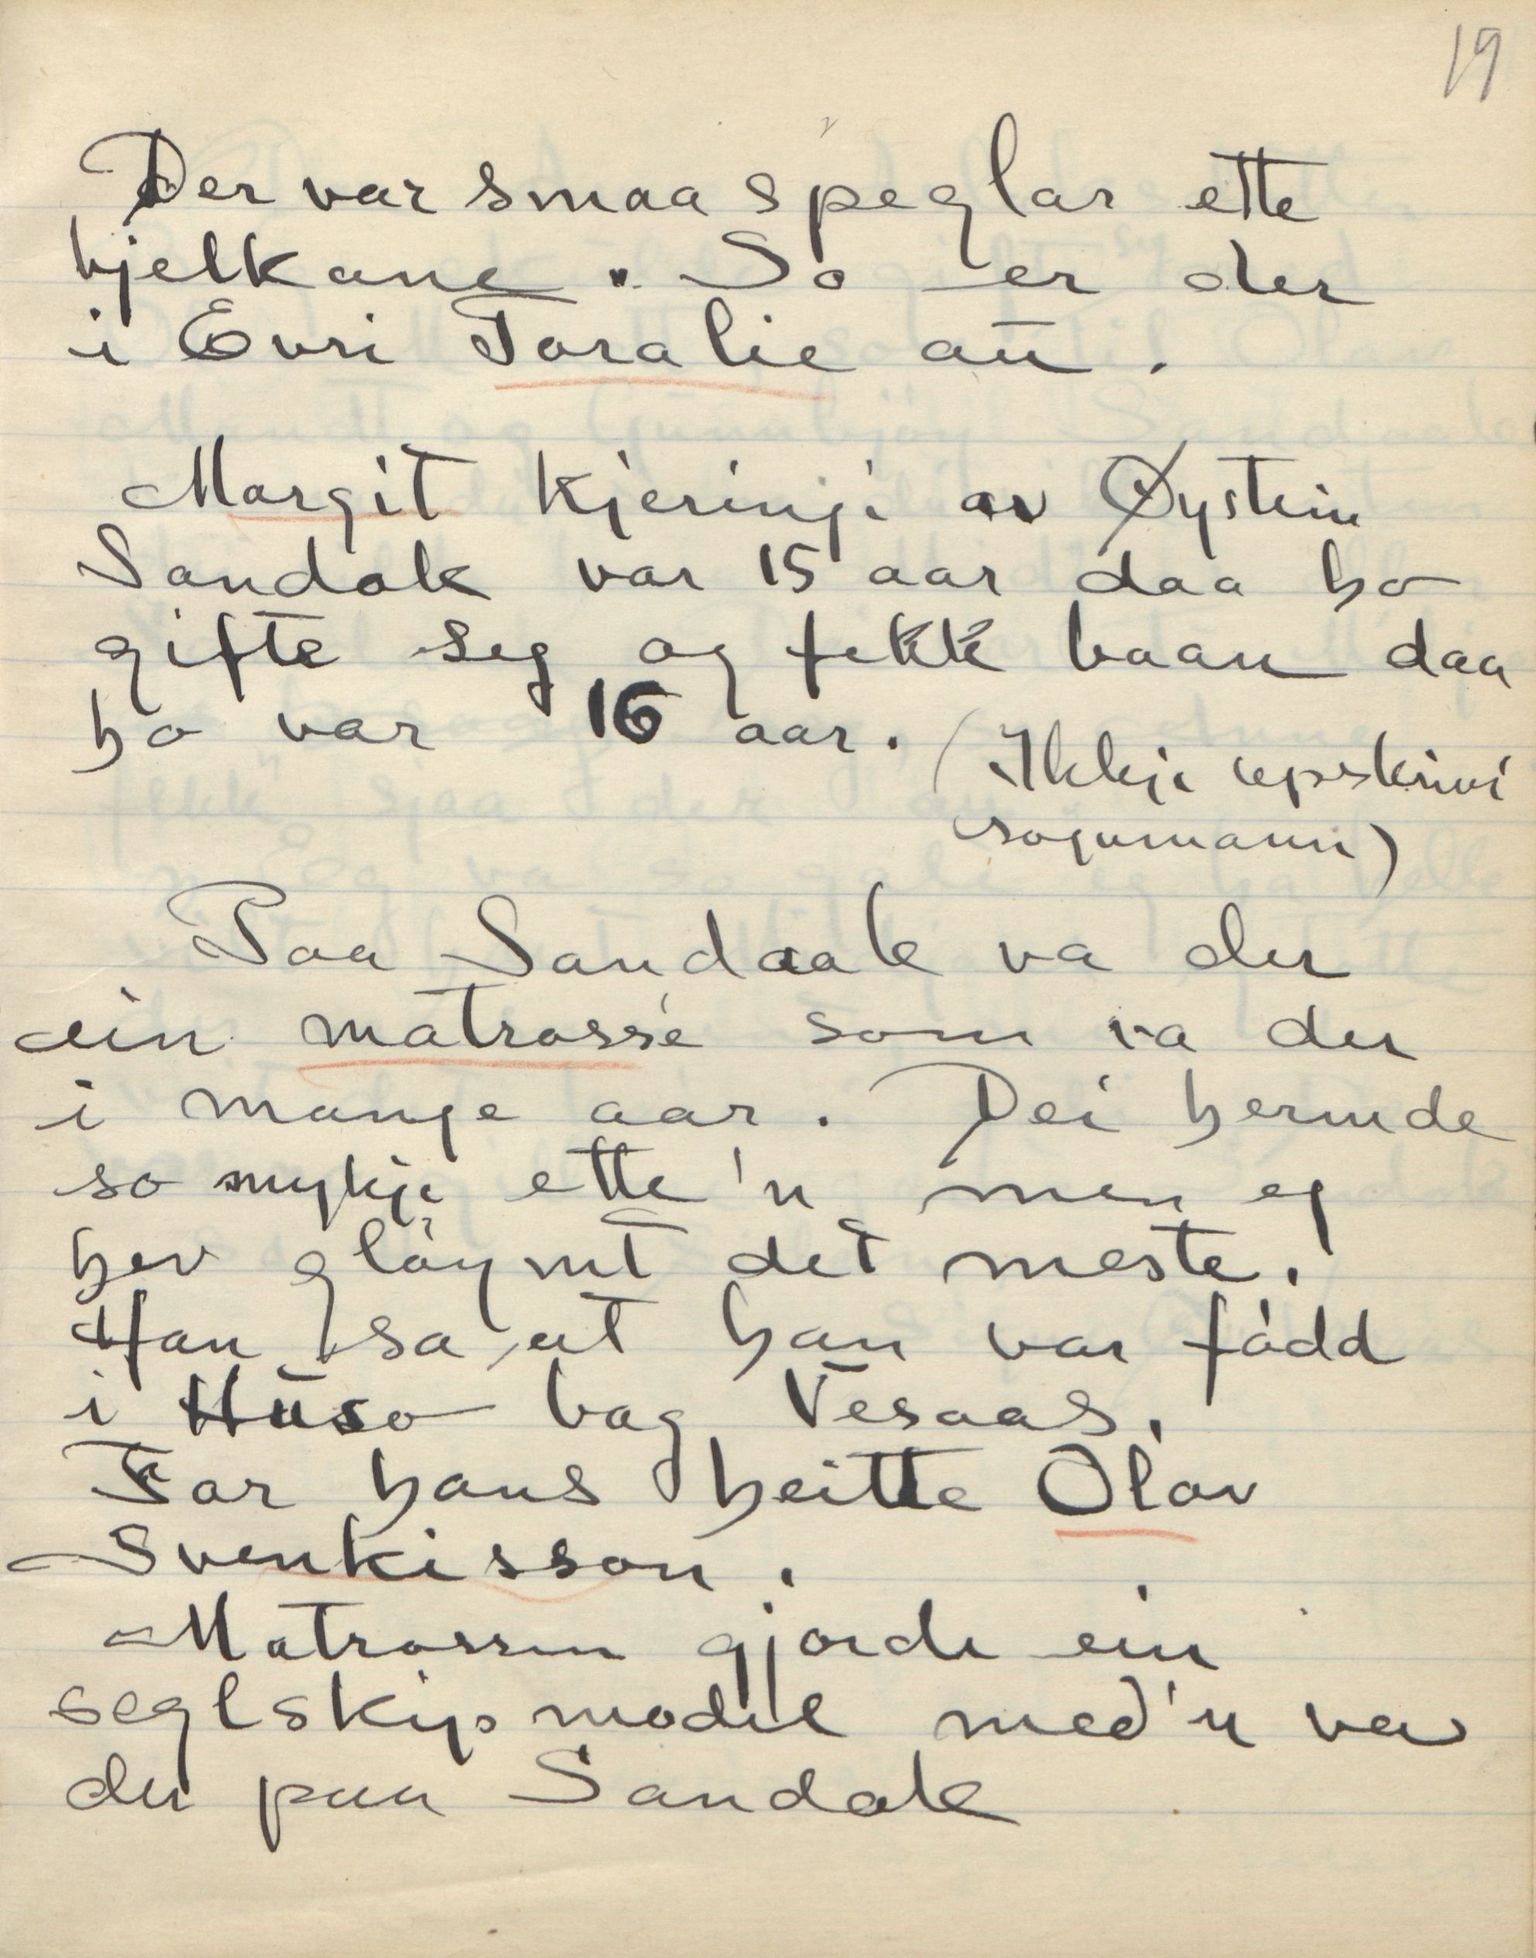 19
Der var smaa speglar ette
bjelkane. So er der
i Evri Toralie au.
Margit Kjeringi av Øystein
Sandok var 15 aar daa ho
gifte seg og fekk baan daa
ho var 16 aar. (Ikkje uppskrivi
sogumann)
Paa Sandaak va der
ein matrosse som va der
i mange aar. Dei hermde
so mykje ette'n men eg
hev gløymt det meste.
Han sa at han var fødd
i Huso bag Vesaas.
Far hans heitte Olav
Svenkisson.
Matrossen gjorde ein
seglskipsmodel med'n va
der paa Sandok